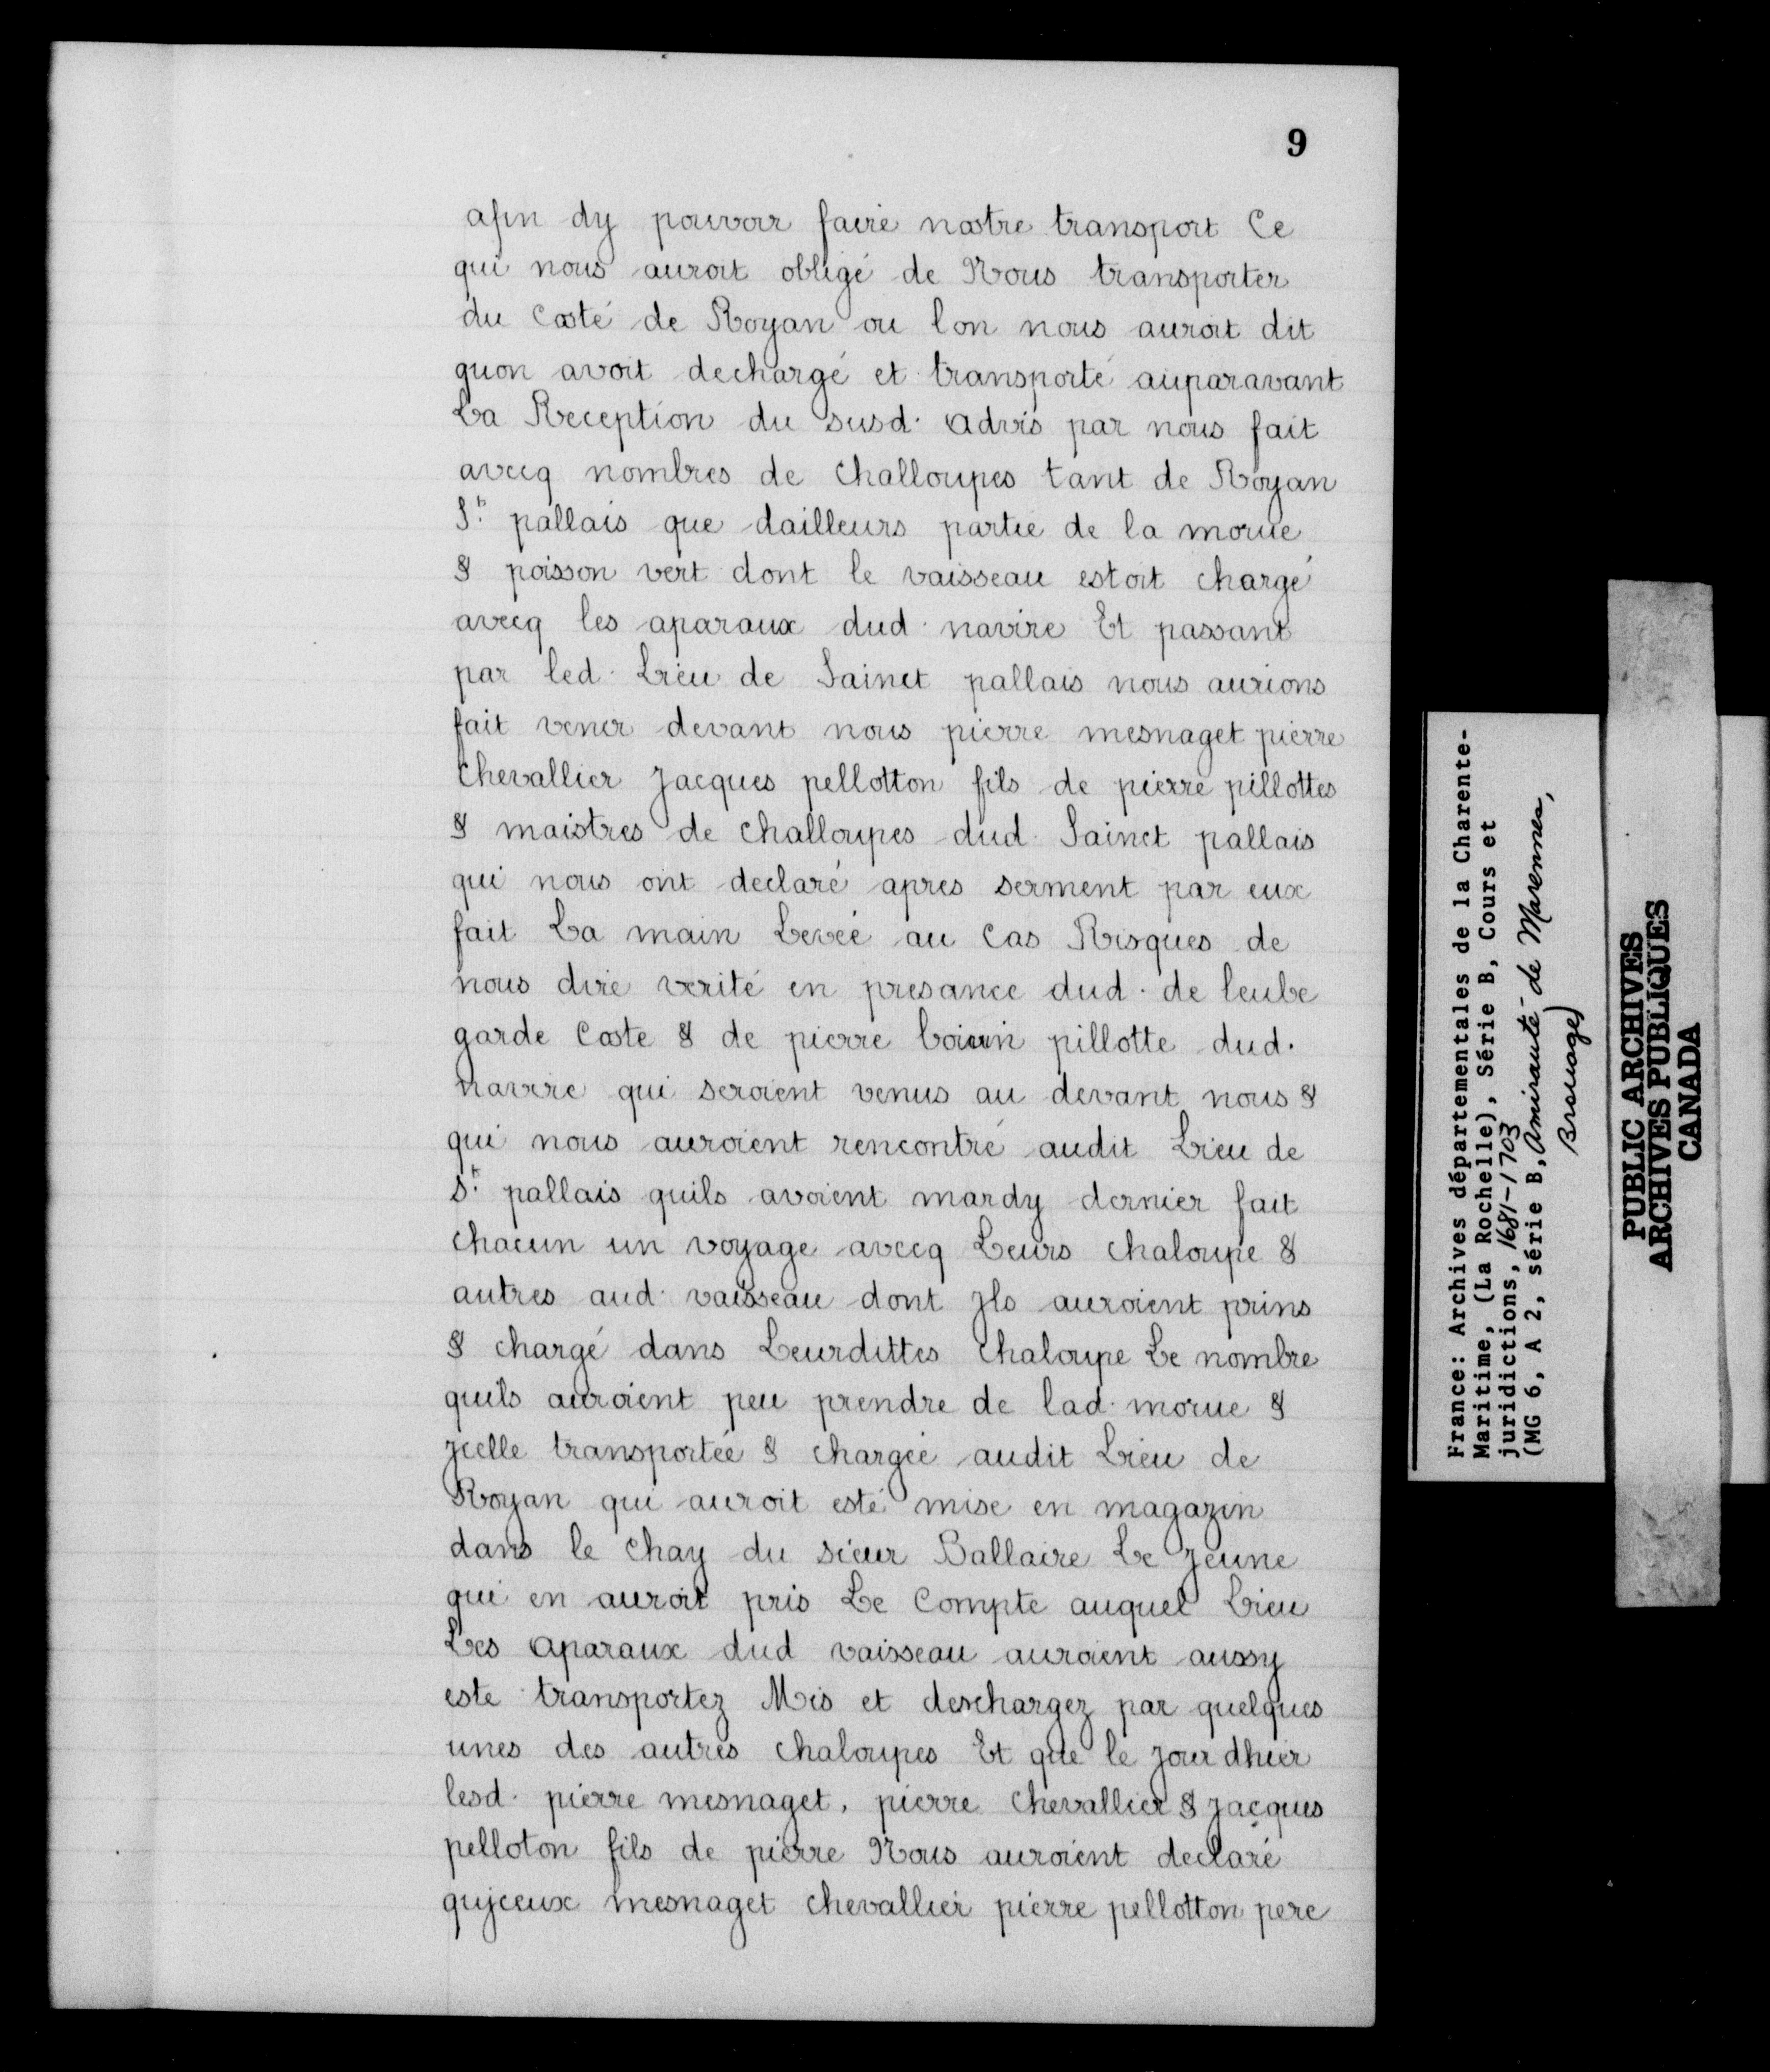 9
afin dy pouvoir faire nostre transport Ce
qui nous auroit obligé de Nous transporter
du Costé de Royan ou lon nous auroit dit
quon avoit dechargé et transporté auparavant
La Reception du susd. advis par nous fait
avecq nombres de challoupes tant de Royan
St. pallais que dailleurs partie de la morue
& poisson vert dont le vaisseau estoit chargé
avecq les aparaux dud. navire Et passant
par led. Lieu de Sainct pallais nous aurions
fait venir devant nous pierre mesnaget pierre
chevallier Jacques pellotton fils de pierre pillottes
& maistres de challoupes dud. Sainct pallais
qui nous ont declaré apres serment par eux
fait La main Levéé au cas Risques de
nous dire verité en presance dud. de leube
garde Coste & de pierre pillotte dud.
navire qui seroient venus au devant nous &
qui nous auroient rencontré audit Lieu de
St. pallais quils avoient mardy dernier fait
chacun un voyage avecq Leurs chaloupe &
autres aud. vaisseau dont Jls auroient prins
& chargé dans Leurdittes chaloupe Le nombre
quils auroient peu prendre de lad. morue &
Jcelle transportéé & chargéé audit Lieu de
Royan qui auroit esté mise en magazin
dans le chay du sieur Ballaire Le Jeune
qui en auroit pris Le Compte auquel Lieu
Les aparaux dud vaisseau auroient aussy
este transportez Mis et deschargez par quelques
unes des autres chaloupes Et que le Jour dhier
lesd. pierre mesnaget, pierre chevallier & Jacques
pelloton fils de pierre Nous auroient declaré
qujceux mesnaget chevallier pierre pellotton pere
France: Archives départementales de la Charente-
Maritime, (La Rochelle), Série B, Cours et
juridictions, 1681-1703
(MG 6, A 2, série B, Amirauté de Marennes,
Brouage)
PUBLIC ARCHIVES
ARCHIVES PUBLIQUES
CANADA